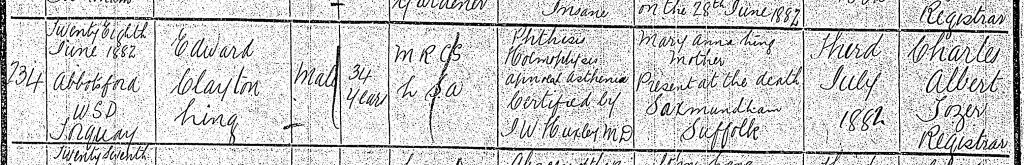 Gardener
Insane
on the 28th June 1882
Registrar
234
Twenty Eighth
June 1882
Abbotsford
WSD
Torquay
Edward
Clayton
Ling
Male
34
years
M R C S
L S A
Phthisis
Hæmophysis
apnoeal Asthenia
Certified by
I W Huxley M D
Mary Anna Ling
Mother
Present at the death
Saxmundham
Suffolk
Third
July
1882
Charles
Albert
Tozer
Registrar
Twenty Seventh